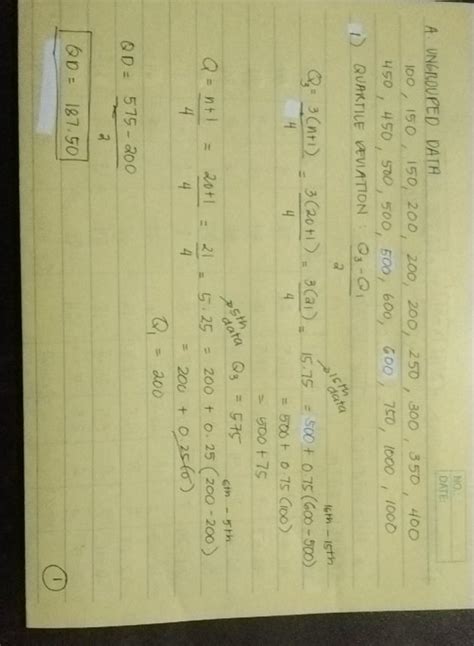 NO.
DATE
A. UNGROUPED DATA
100, 150, 150, 200, 200, 200, 250, 300, 350, 400
450, 450, 500, 500, 500, 600, 600, 750, 1000, 1000
1) QUARTILE DEVIATION : Q3 - Q1
2
Q3 = 3(n+1) = 3(20+1) = 3(21) = 15.75 = 500 + 0.75 (600 - 500)
4 4 4
15th data
16th - 15th
= 500 + 0.75 (100)
= 500 + 75
Q3 = 575
Q = n+1 = 20+1 = 21 = 5.25 = 200 + 0.25 (200 - 200)
4 4 4
5th data
6th - 5th
= 200 + 0.25(0)
Q1 = 200
QD = 575 - 200
2
QD = 187.50
1